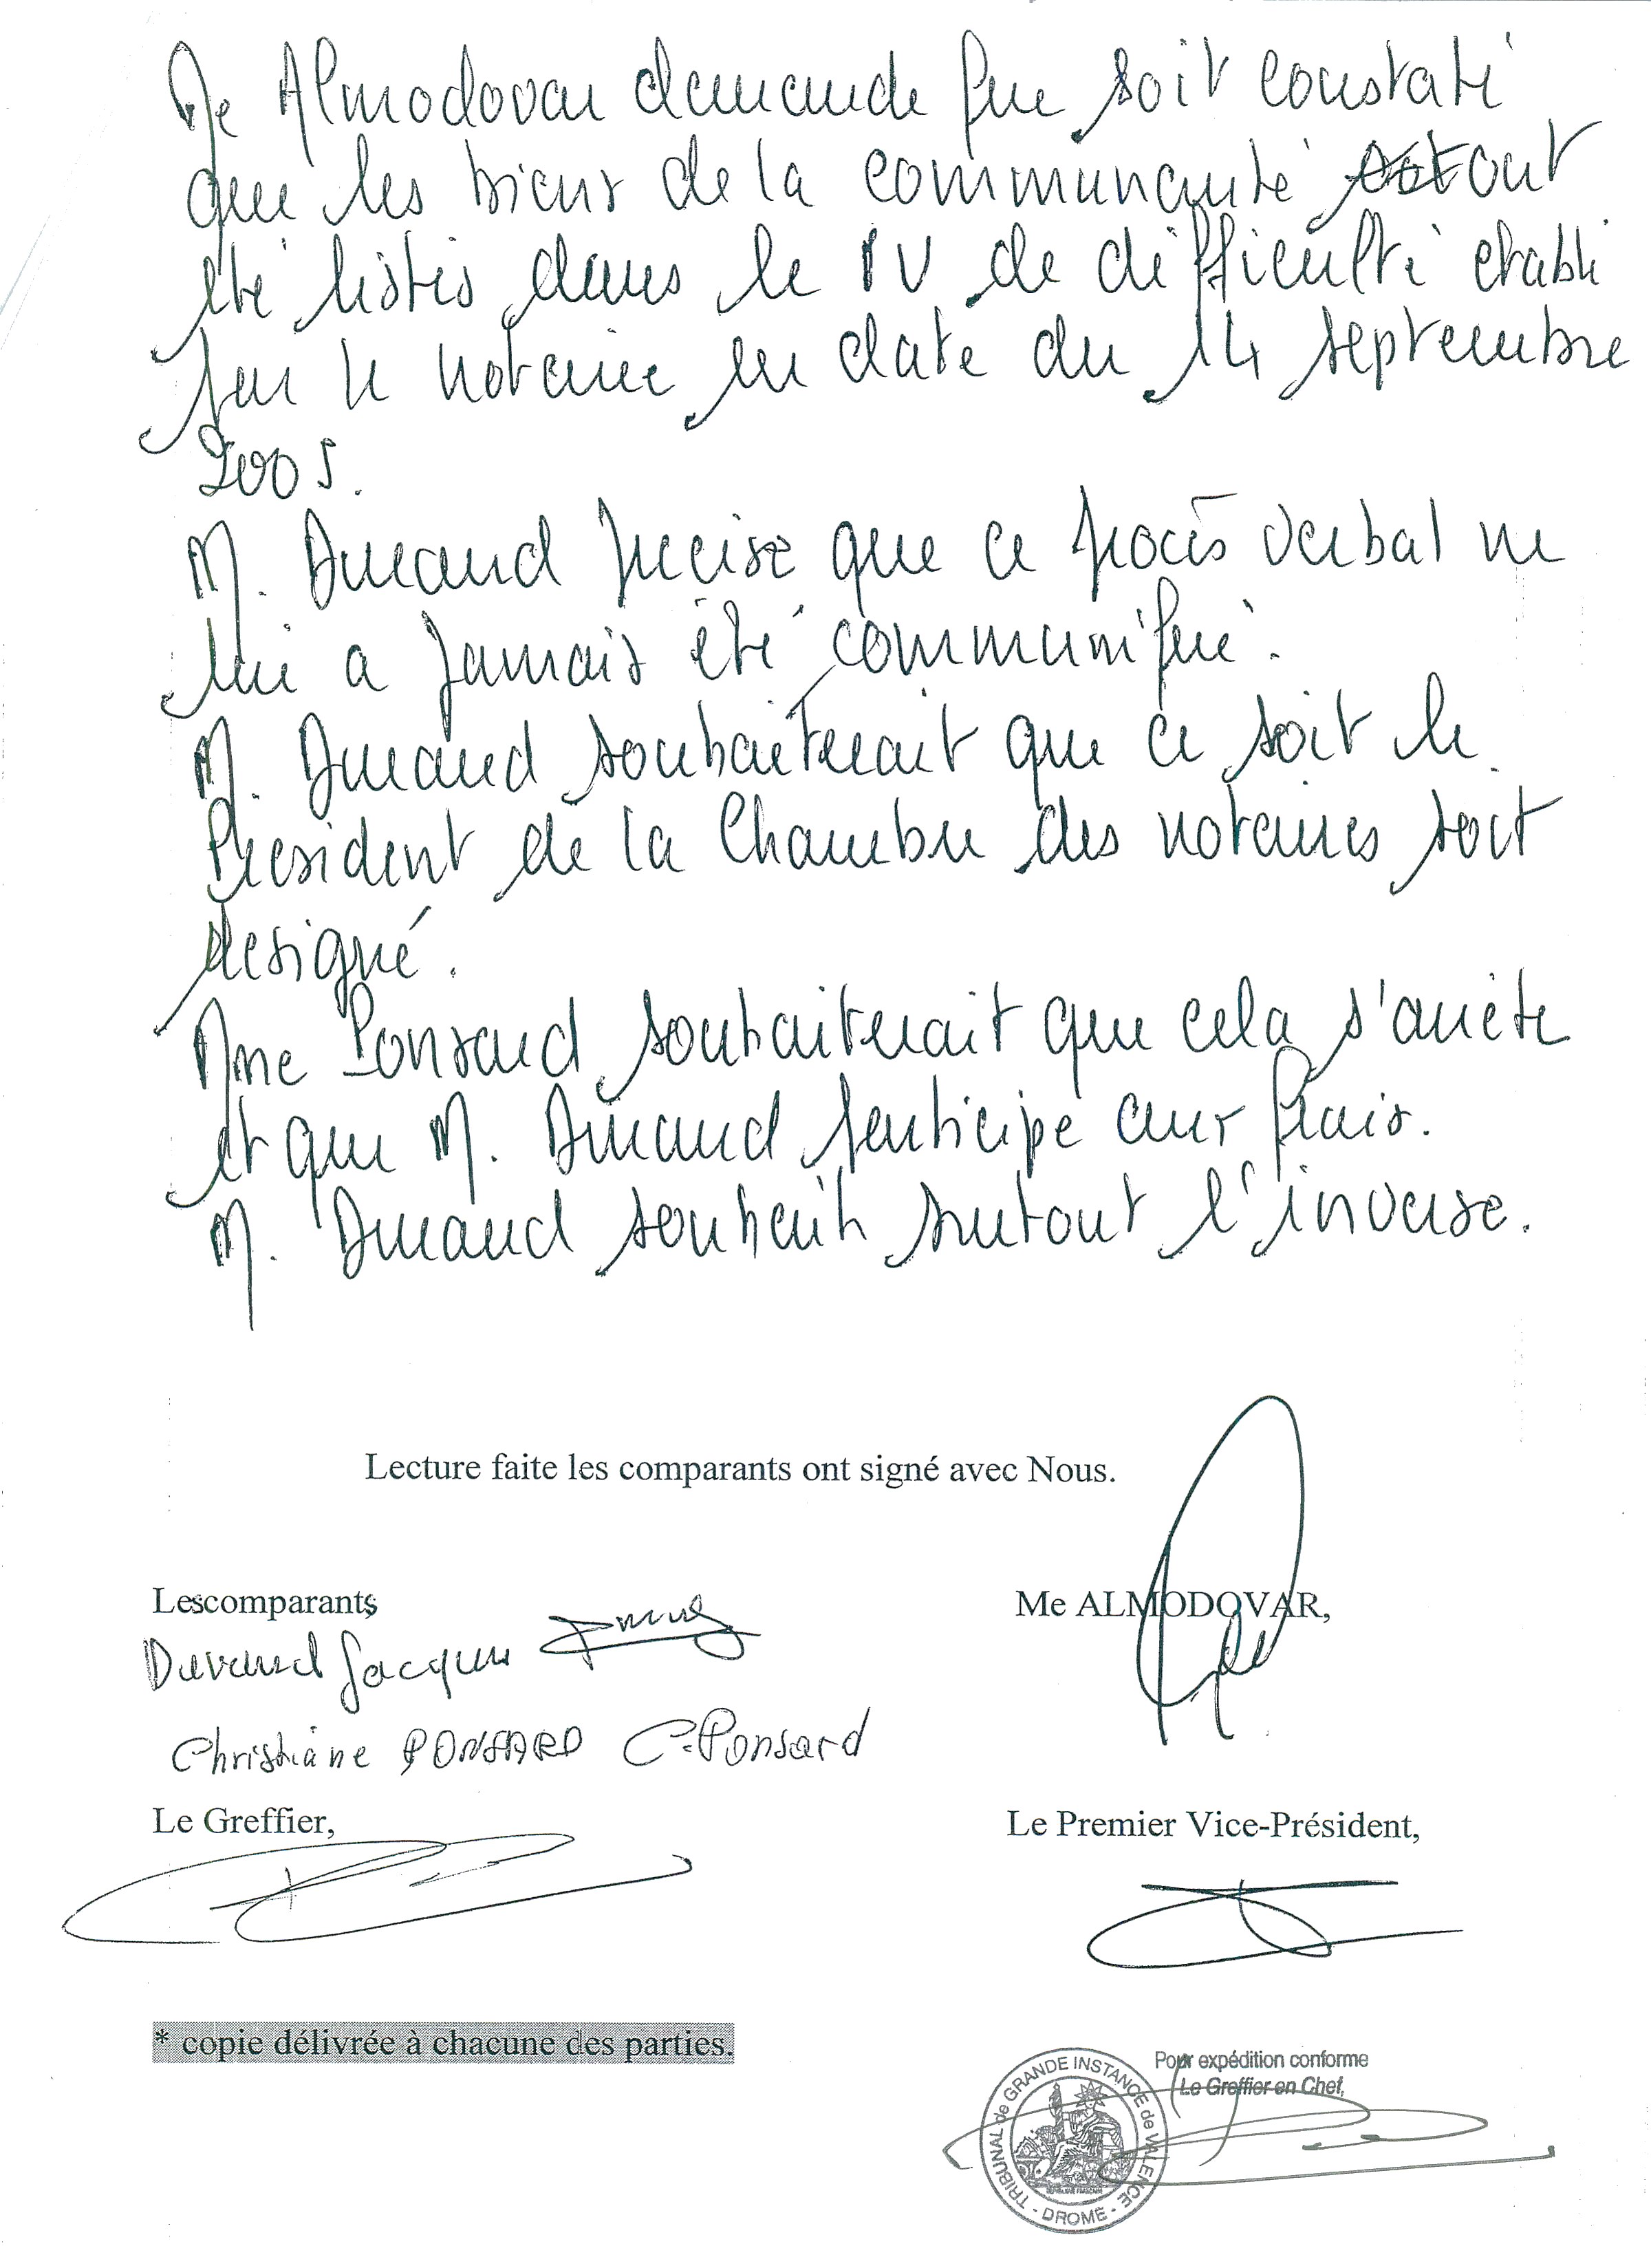 Me Almodovar demande que soit constaté
que les biens de la communauté ont
été listés dans le PV de difficulté établi
par le notaire en date du 14 septembre
2005.
M. Durand précise que ce procès verbal ne
lui a jamais été communiqué.
M. Durand souhaiterait que ce soit le
President de la Chambre des notaires soit
designé.
Mme Ponsard souhaiterait que cela s'arrête
et que M. Durand participe aux frais.
M. Durand souhaite surtout l'inverse.
Lecture faite les comparants ont signé avec Nous.
Lescomparants
Me ALMODOVAR,
Durand Jacques
Christiane PONSARD C. Ponsard
Le Greffier,
Le Premier Vice-Président,
* copie délivrée à chacune des parties.
Pour expédition conforme
Le Greffier en Chef,
TRIBUNAL de GRANDE INSTANCE de VALENCE
- DROME -